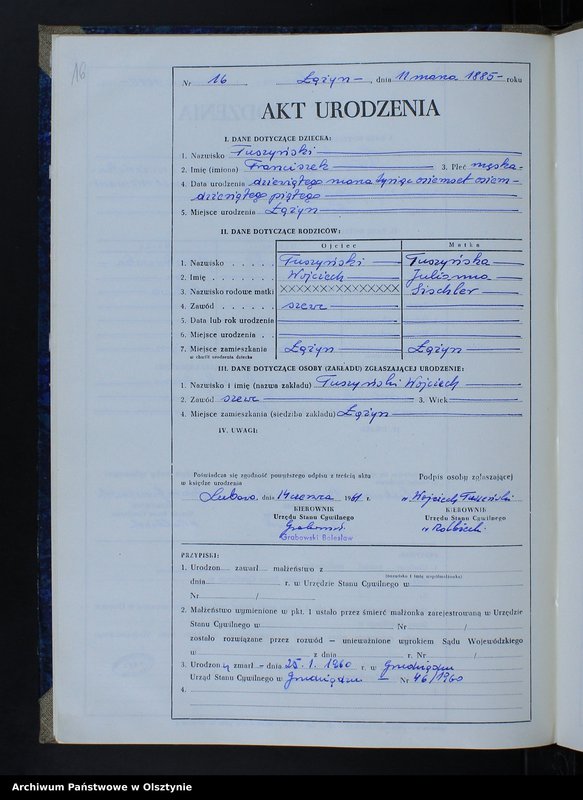 16
Nr 16 Łążyn — , dnia 11 marca 1885 — roku
AKT URODZENIA
I. DANE DOTYCZĄCE DZIECKA:
1. Nazwisko Tuszyński
2. Imię (imiona) Franciszek 3. Płeć męska
4. Data urodzenia dziewiątego marca tysiąc osiemset osiem-
dziesiątego piątego
5. Miejsce urodzenia Łążyn
II. DANE DOTYCZĄCE RODZICÓW:
Ojciec Matka
1. Nazwisko Tuszyński Tuszyńska
2. Imię Wojciech Julianna
3. Nazwisko rodowe matki XXXXXXXXXXXX Sischler
4. Zawód szewc
5. Data lub rok urodzenia
6. Miejsce urodzenia
7. Miejsce zamieszkania Łążyn Łążyn
w chwili urodzenia dziecka
III. DANE DOTYCZĄCE OSOBY (ZAKŁADU) ZGŁASZAJĄCEJ URODZENIE:
1. Nazwisko i imię (nazwa zakładu) Tuszyński Wojciech
2. Zawód szewc 3. Wiek
4. Miejsce zamieszkania (siedziba zakładu) Łążyn
IV. UWAGI:
Poświadcza się zgodność powyższego odpisu z treścią aktu
w księdze urodzenia
dnia 14 czerwca 1961 r.
KIEROWNIK
Urzędu Stanu Cywilnego
Grabowski Bolesław
Podpis osoby zgłaszającej
Wojciech
KIEROWNIK
Urzędu Stanu Cywilnego
PRZYPISKI:
1. Urodzon zawarł małżeństwo z
(nazwisko i imię współmałżonka)
dnia r. w Urzędzie Stanu Cywilnego w
Nr /
2. Małżeństwo wymienione w pkt. 1 ustało przez śmierć małżonka zarejestrowaną w Urzędzie
Stanu Cywilnego w Nr /
zostało rozwiązane przez rozwód — unieważnione wyrokiem Sądu Wojewódzkiego
w z dnia r. Nr /
3. Urodzony zmarł — dnia 25. 1. 1960 r. w Grudziądzu
Urząd Stanu Cywilnego w Grudziądzu Nr 46/1960
4.
Archiwum Państwowe w Olsztynie